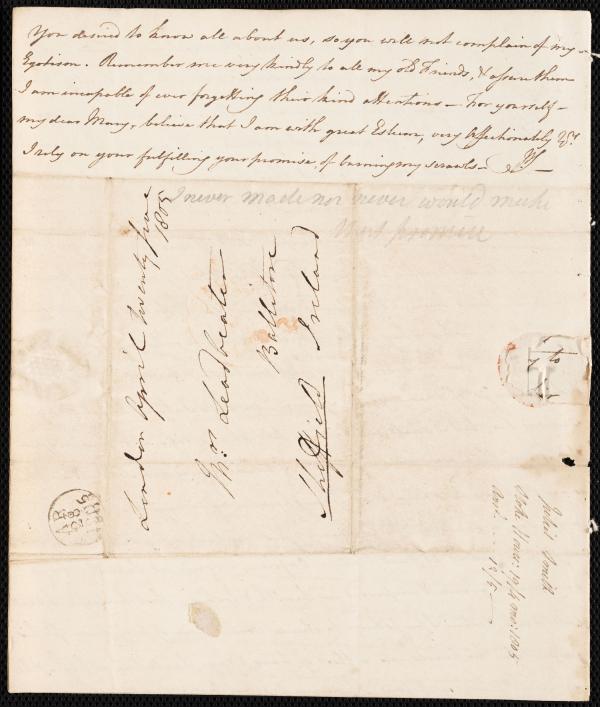 You desired to know all about us, so you will not complain of my
Egotism. Remember me very kindly to all my old Friends, & assure them
I am incapable of ever forgetting their kind attentions — For yourself —
my dear Mary, believe that I am with great Esteem, very affectionately Yrs.
I rely on your fulfilling your promise, of burning my scrawls —
I never made nor never would make
that promise
London April twenty five
1805
Mrs. Leadbeater
Ballitore
Ireland
Sheffield
AP
28
1805
Juliet Smith
1805